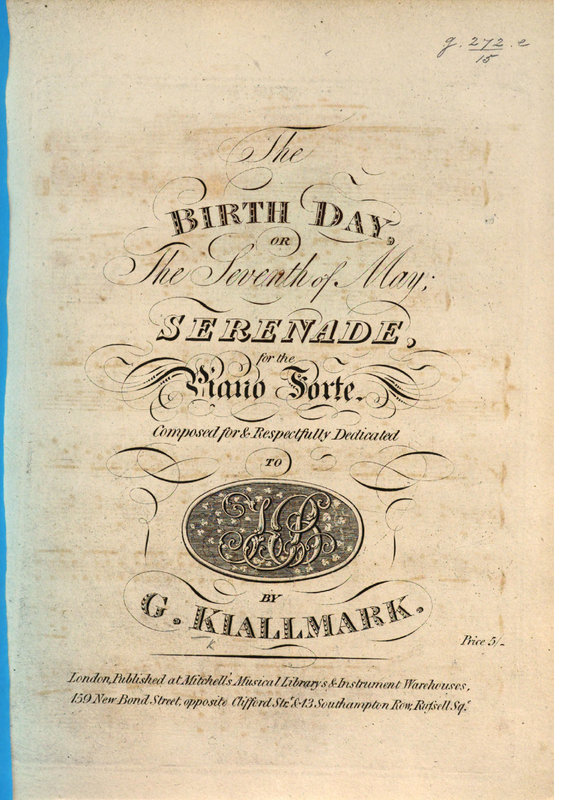 g. 272. e
15
The
BIRTH DAY,
OR
The Seventh of May;
SERENADE,
for the
Piano Forte.
Composed for & Respectfully Dedicated
TO
BY
G. KIALLMARK.
k
Price 5/-
London, Published at Mitchell's Musical Library's & Instrument Warehouses,
159 New Bond Street, opposite Clifford Str.t & 13 Southampton Row, Rufsell Sq.r